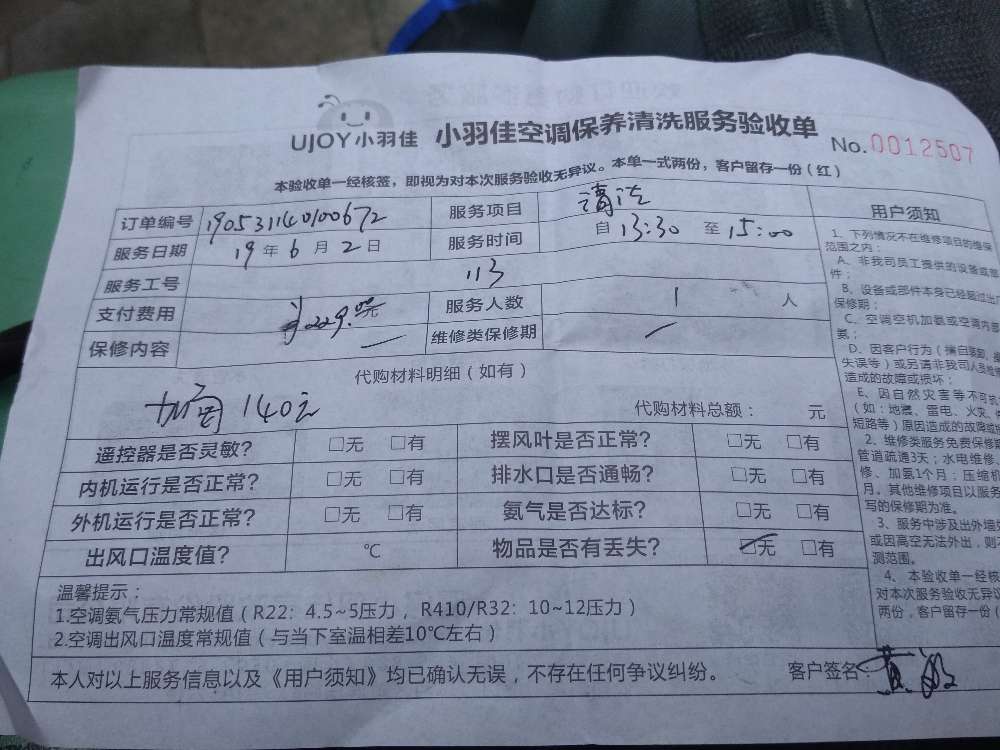 UJOY小羽佳 小羽佳空调保养清洗服务验收单 No.0012507
本验收单一经核签，即视为对本次服务验收无异议。本单一式两份，客户留存一份（红）
订单编号 190531140100672 服务项目 清洁
服务日期 19年6月2日 服务时间 自13:30至15:00
服务工号 113
支付费用 229.00元 服务人数 1人
保修内容 — 维修类保修期 —
代购材料明细（如有）
加氟 140元
代购材料总额： 元
遥控器是否灵敏? □无 □有 摆风叶是否正常? □无 □有
内机运行是否正常? □无 □有 排水口是否通畅? □无 □有
外机运行是否正常? □无 □有 氨气是否达标? □无 □有
出风口温度值? ℃ 物品是否有丢失? ☑无 □有
温馨提示：
1.空调氨气压力常规值（R22：4.5~5压力，R410/R32：10~12压力）
2.空调出风口温度常规值（与当下室温相差10℃左右）
本人对以上服务信息以及《用户须知》均已确认无误，不存在任何争议纠纷。 客户签名：
用户须知
1、下列情况不在维修项目的维保
范围之内：
A、非我司员工提供的设备或
件；
B、设备或部件本身已经超过出
保修期；
C、空调空机加氨或空调内
氨；
D、因客户行为（擅自装卸、
失误等）或另请非我司人员
造成的故障或损坏；
E、因自然灾害等不可抗
（如：地震、雷电、火灾、
短路等）原因造成的故障或
2、维修类服务免费保修
管道疏通3天；水电维修、
修、加氨1个月；压缩机
月。其他维修项目以服务
写的保修期为准。
3、服务中涉及出外墙
或因高空无法外出，则不
测范围。
4、本验收单一经核
对本次服务验收无异议
两份，客户留存一份（